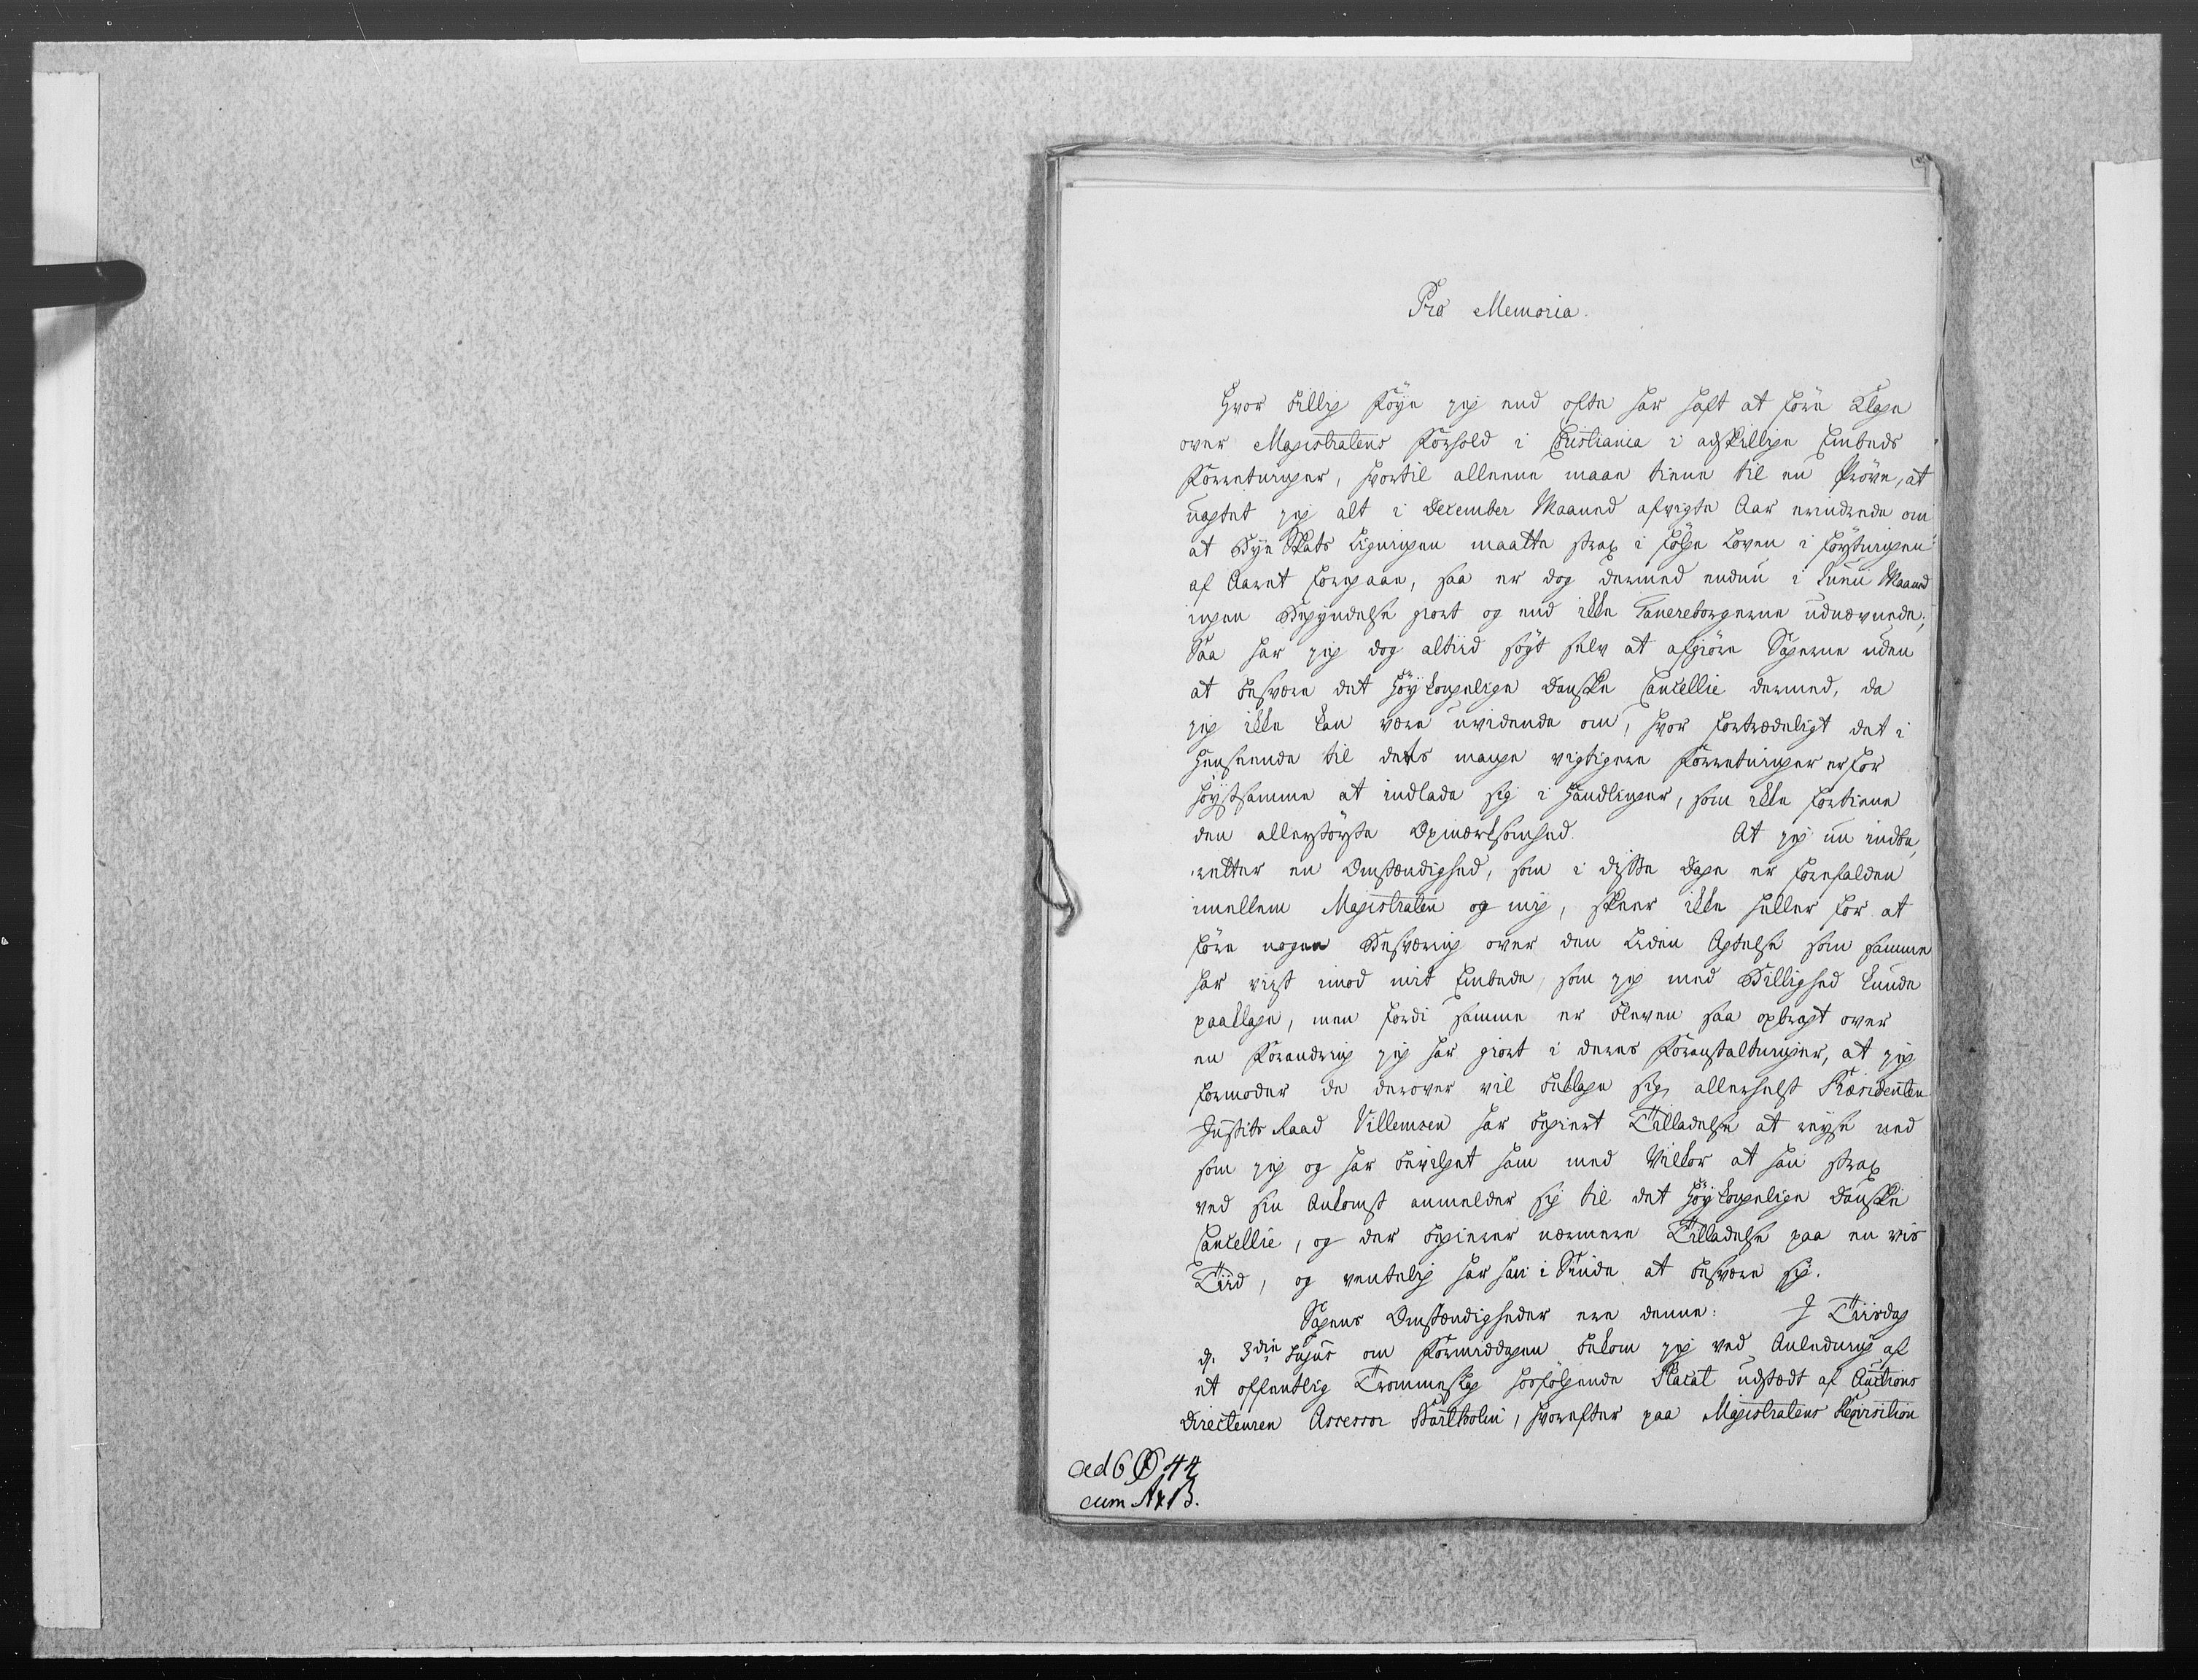 Pro Memoria.
Hvor billig Føye jeg end ofte har haft at føre Klage
over Magistratens Forhold i Christiania i adskillige Embeds
Forretninger, hvortil alleene maae tiene til en Prøve, at
uagtet jeg alt i December Maaned afvigte Aar erindrede om
at Bye Skats Ligningen maatte strax i følge Loven i førstningen
af Aaret foregaae, saa er dog dermed endnu i Junii Maaned
ingen Begyndelse giort og end ikke Taxereborgerne udnævnede;
Saa har jeg dog altiid søgt selv at afgiøre Sagerne uden
at besvære det Høy Kongelige Danske Cancellie dermed, da
jeg ikke kan være uvidende om, hvor fortrædeligt det i
Henseende til dets mange vigtigere Forretninger er for
høystsamme at indlade sig i Handlinger, som ikke fortiene
den allerstørste Opmærksomhed. At jeg nu indbe,
retter en Omstændighed, som i disse Dage er forefalden
imellem Magistraten og mig, skeer ikke heller for at
føre nogen Besværing over den liden Agtelse som samme
har viist imod mit Embede, som jeg med Billighed kunde
paaklage, men fordi samme er bleven saa opbragt over
en Forandring jeg har giort i deres Foranstaltninger, at jeg
formoder de derover vil beklage sig, allerhelst Præsidenten
Justits Raad Villemsen har begiert Tilladelse at reyse ned
som jeg og har bevilget ham med Vilkor at han strax
ved sin Ankomst anmelder sig til det Høy Kongelige Danske
Cancellie, og der begierer nærmere Tilladelse paa en vis
Tiid, og ventelig har han i Sinde at besvære sig.
Sagens Omstændigheder ere denne: J Tiirsdag
d. 3die hujus om Formiddagen bekom jeg ved Anledning af
et offentlig Trommeslag hosfølgende Placat udstædt af Auctions
Directeuren Assessor Bartholin, hvorefter paa Magistratens Reqvisition
ad 6 44
cum A & B.